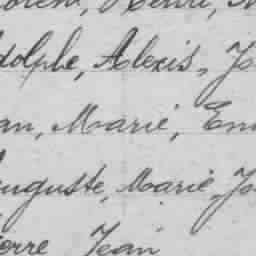 Henri,
dolphe, Alexis, Jo
an, Marie, Em
uguste, Marie, Jo
ierre Jean